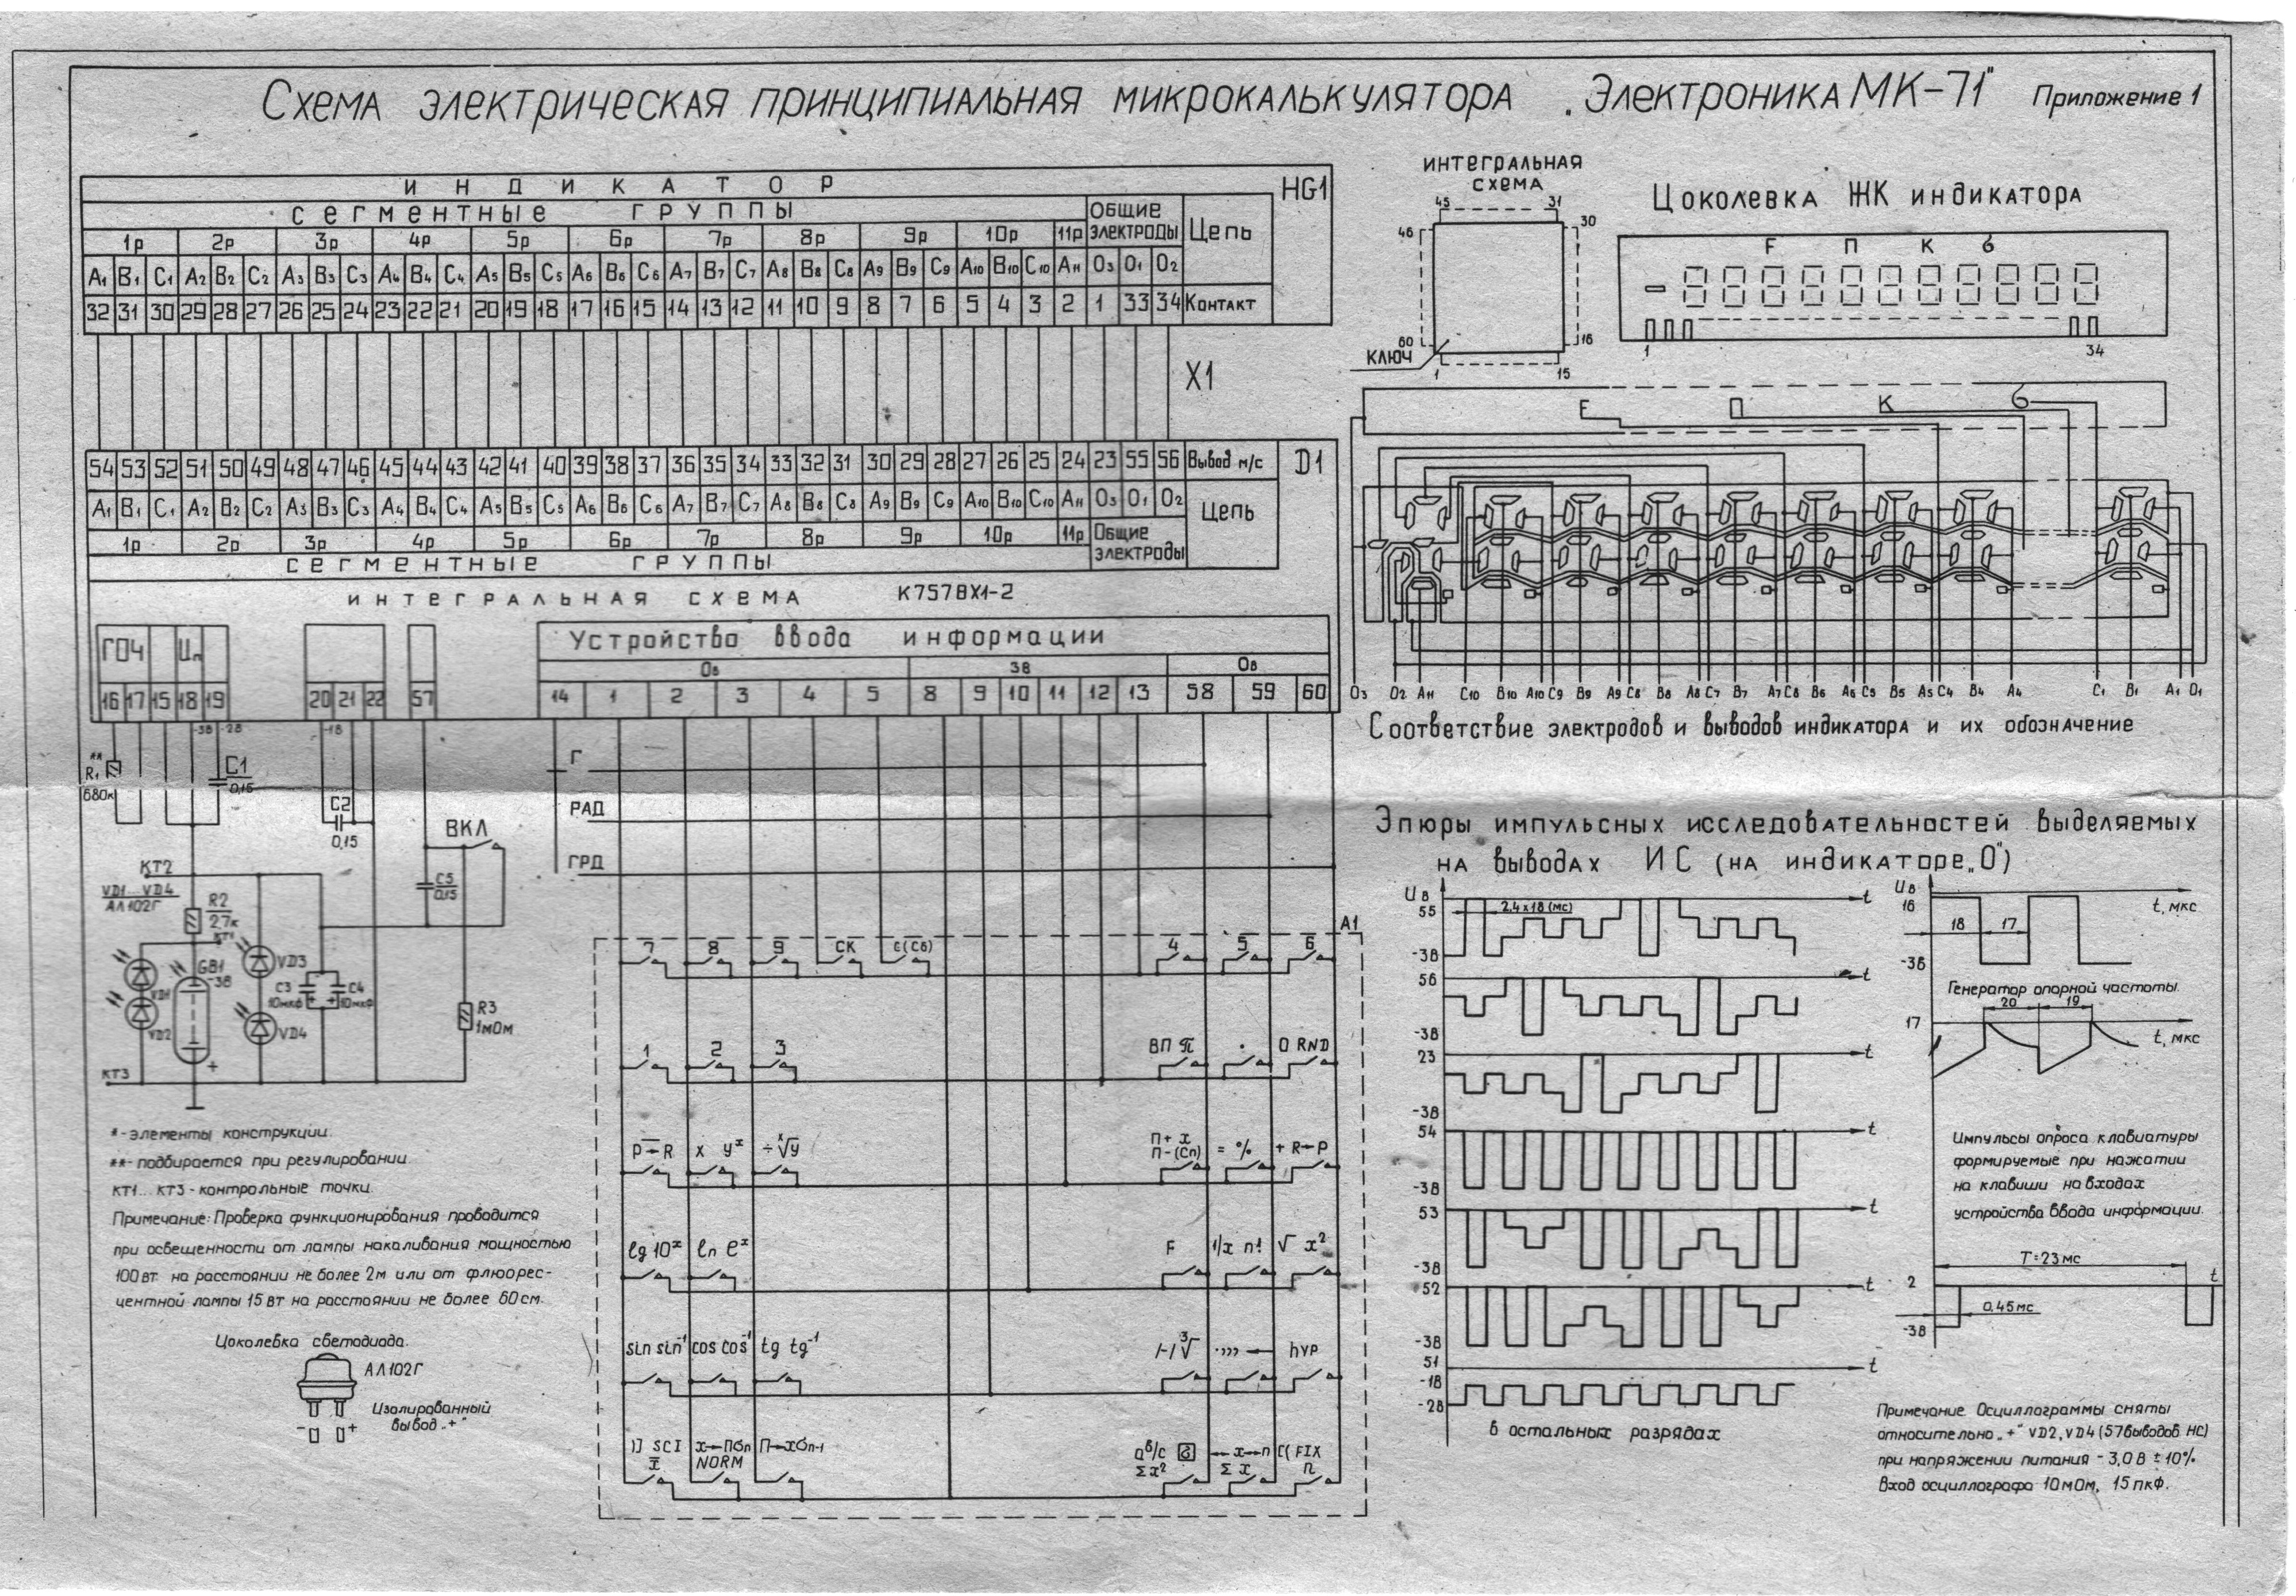 Схема электрическая принципиальная микрокалькулятора „Электроника МК-71" Приложение 1
ИНДИКАТОР HG1
СЕГМЕНТНЫЕ ГРУППЫ ОБЩИЕ ЭЛЕКТРОДЫ Цепь
1р 2р 3р 4р 5р 6р 7р 8р 9р 10р 11р
A1 B1 C1 A2 B2 C2 A3 B3 C3 A4 B4 C4 A5 B5 C5 A6 B6 C6 A7 B7 C7 A8 B8 C8 A9 B9 C9 A10 B10 C10 A11 O3 O1 O2
32 31 30 29 28 27 26 25 24 23 22 21 20 19 18 17 16 15 14 13 12 11 10 9 8 7 6 5 4 3 2 1 33 34 Контакт
X1
54 53 52 51 50 49 48 47 46 45 44 43 42 41 40 39 38 37 36 35 34 33 32 31 30 29 28 27 26 25 24 23 55 56 Вывод м/с D1
A1 B1 C1 A2 B2 C2 A3 B3 C3 A4 B4 C4 A5 B5 C5 A6 B6 C6 A7 B7 C7 A8 B8 C8 A9 B9 C9 A10 B10 C10 A11 O3 O1 O2 Цепь
1р 2р 3р 4р 5р 6р 7р 8р 9р 10р 11р Общие электроды
СЕГМЕНТНЫЕ ГРУППЫ
ИНТЕГРАЛЬНАЯ СХЕМА К757ВХ1-2
ГОЧ Uп
16 17 15 18 19 20 21 22 57
-3В -2В -1В
Устройство ввода информации
0в 3в 0в
14 1 2 3 4 5 8 9 10 11 12 13 58 59 60
** R1 680к
C1 0,15
C2 0,15
ВКЛ
Г
РАД
ГРД
КТ2
VD1...VD4
АЛ102Г
R2 2,7к
КТ1
C5 0,15
GB1 -3В
VD1
VD2
VD3
VD4
C3 10мкФ
C4 10мкФ
R3 1мОм
КТ3
A1
7 8 9 СК C(Сб) 4 5 6
1 2 3 ВП π . 0 RND
P→R x yˣ ÷ ˣ√y П+ x П-(Сп) = % + R→P
lg 10ˣ ln eˣ F 1/x n! √ x²
sin sin⁻¹ cos cos⁻¹ tg tg⁻¹ /-/ ³√ .,,,, ← hyp
)] SCI x̄ x→П σn NORM П→x σn-1 aᵇ/c Σx² ↔ x→п Σx [( FIX n
*-элементы конструкции.
**-подбирается при регулировании.
КТ1...КТ3-контрольные точки.
Примечание: Проверка функционирования проводится
при освещенности от лампы накаливания мощностью
100вт на расстоянии не более 2м или от флюорес-
центной лампы 15вт на расстоянии не более 60см.
Цоколевка светодиода.
АЛ102Г
Изолированный
вывод „+"
- +
ИНТЕГРАЛЬНАЯ
СХЕМА
45 31
46 30
60 16
КЛЮЧ
1 15
Цоколевка ЖК индикатора
F П К б
1 34
F П К б
O3 O2 A11 C10 B10 A10 C9 B9 A9 C8 B8 A8 C7 B7 A7 C6 B6 A6 C5 B5 A5 C4 B4 A4 C1 B1 A1 O1
Соответствие электродов и выводов индикатора и их обозначение
Эпюры импульсных исследовательностей выделяемых
на выводах ИС (на индикаторе „0")
Uв t
55 2,4x18 (мс)
-3В
56 t
-3В
23 t
-3В
54 t
-3В
53 t
-3В
52 t
-3В
51 t
-1В
-2В
в остальных разрядах
Uв
16 t, мкс
18 17
-3В
Генератор опорной частоты.
20 19
17 t, мкс
Импульсы опроса клавиатуры
формируемые при нажатии
на клавиши на входах
устройства ввода информации.
T=23мс
2 t
0,45мс
-3В
Примечание. Осциллограммы сняты
относительно „+" VD2, VD4 (57выводов НС)
при напряжении питания - 3,0В ± 10%
Вход осциллографа 10мОм, 15пкФ.